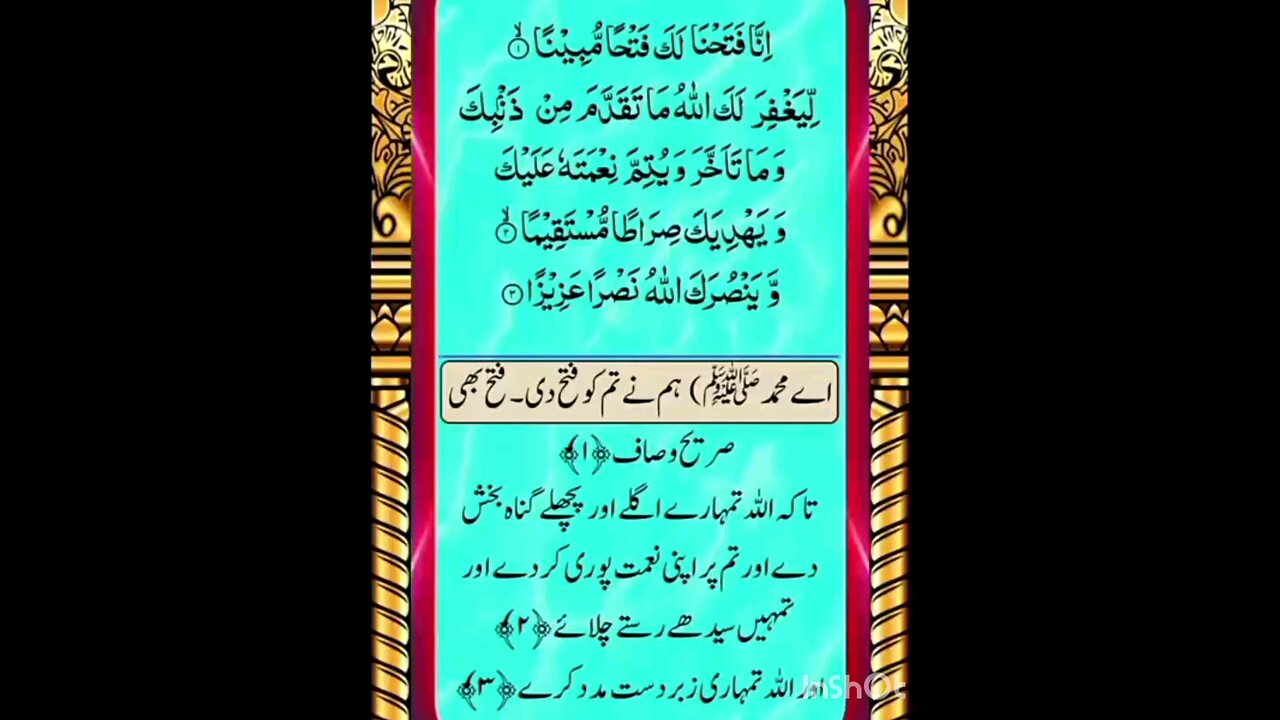 اِنَّا فَتَحْنَا لَكَ فَتْحًا مُّبِيْنًا ۙ﴿۱﴾
لِّيَغْفِرَ لَكَ اللّٰهُ مَا تَقَدَّمَ مِنْ ذَنْۢبِكَ
وَ مَا تَاَخَّرَ وَ يُتِمَّ نِعْمَتَهٗ عَلَيْكَ
وَ يَهْدِيَكَ صِرَاطًا مُّسْتَقِيْمًا ۙ﴿۲﴾
وَّ يَنْصُرَكَ اللّٰهُ نَصْرًا عَزِيْزًا ﴿۳﴾
اے محمد ﷺ) ہم نے تم کو فتح دی۔ فتح بھی
صریح وصاف ﴿۱﴾
تاکہ اللہ تمہارے اگلے اور پچھلے گناہ بخش
دے اور تم پر اپنی نعمت پوری کردے اور
تمہیں سیدھے رستے چلائے ﴿۲﴾
اور اللہ تمہاری زبردست مدد کرے ﴿۳﴾
InShOt